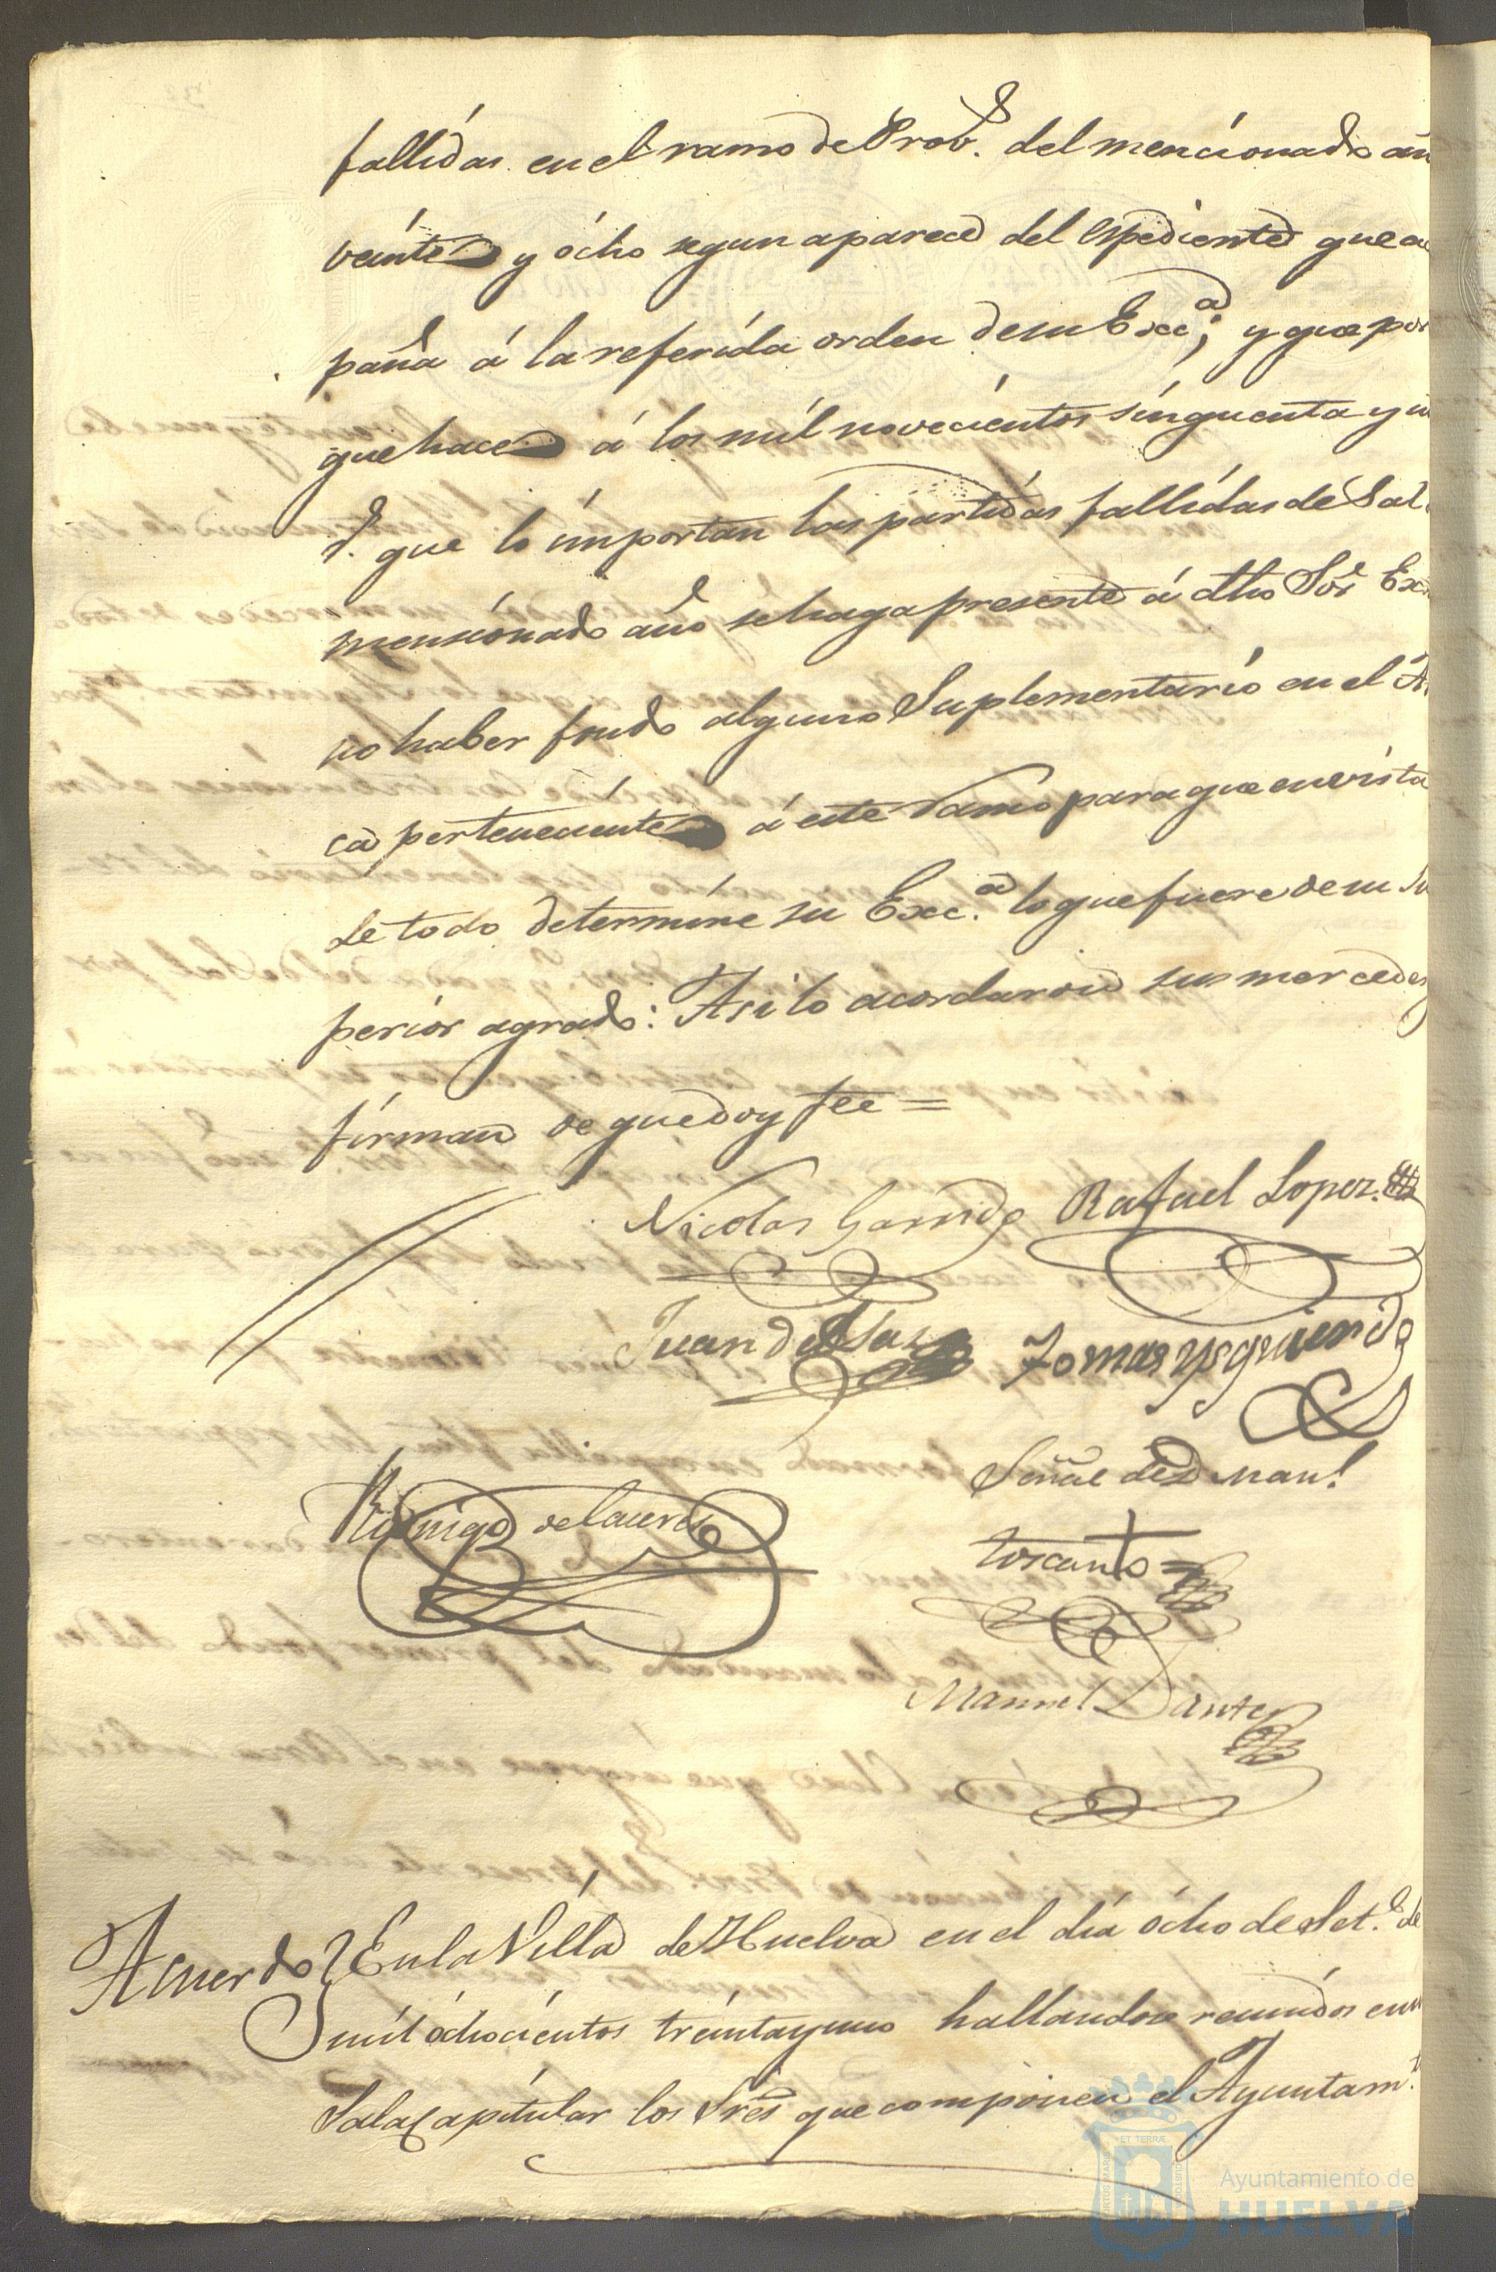 fallidas en el ramo de Prov.s del mencionado añ
veinte y ócho segun aparece del espediente que a
paña á la referida orden de su Exca.; y que por
que hace á los mil novecientos sinquenta y u
r.s que lo importan las partidas fallidas de Sal
mensionado año se haga presente á dho Sor. Ex
no haber fondo alguno Suplementario en el A
ca perteneciente á este ramo para que en vista
de todo determine su Exc.a lo que fuere de su Su
perior agrado: Asi lo acordaron sus mercedes
firman de que doy fee =
Nicolas Garrido Rafael Lopez.
Juan de Saz Tomas Ysquierdo
Señal de D Man.l
Rodrigo de la
toscano =
Manuel Dante
Acuerdo En la Villa de Huelva en el día ócho de Set.e de
mil óchocientos treinta y uno hallandose reunidos en
Sala Capitular los Sres que componen el Ayuntam.to
ET TERRÆ
Ayuntamiento de
HUELVA